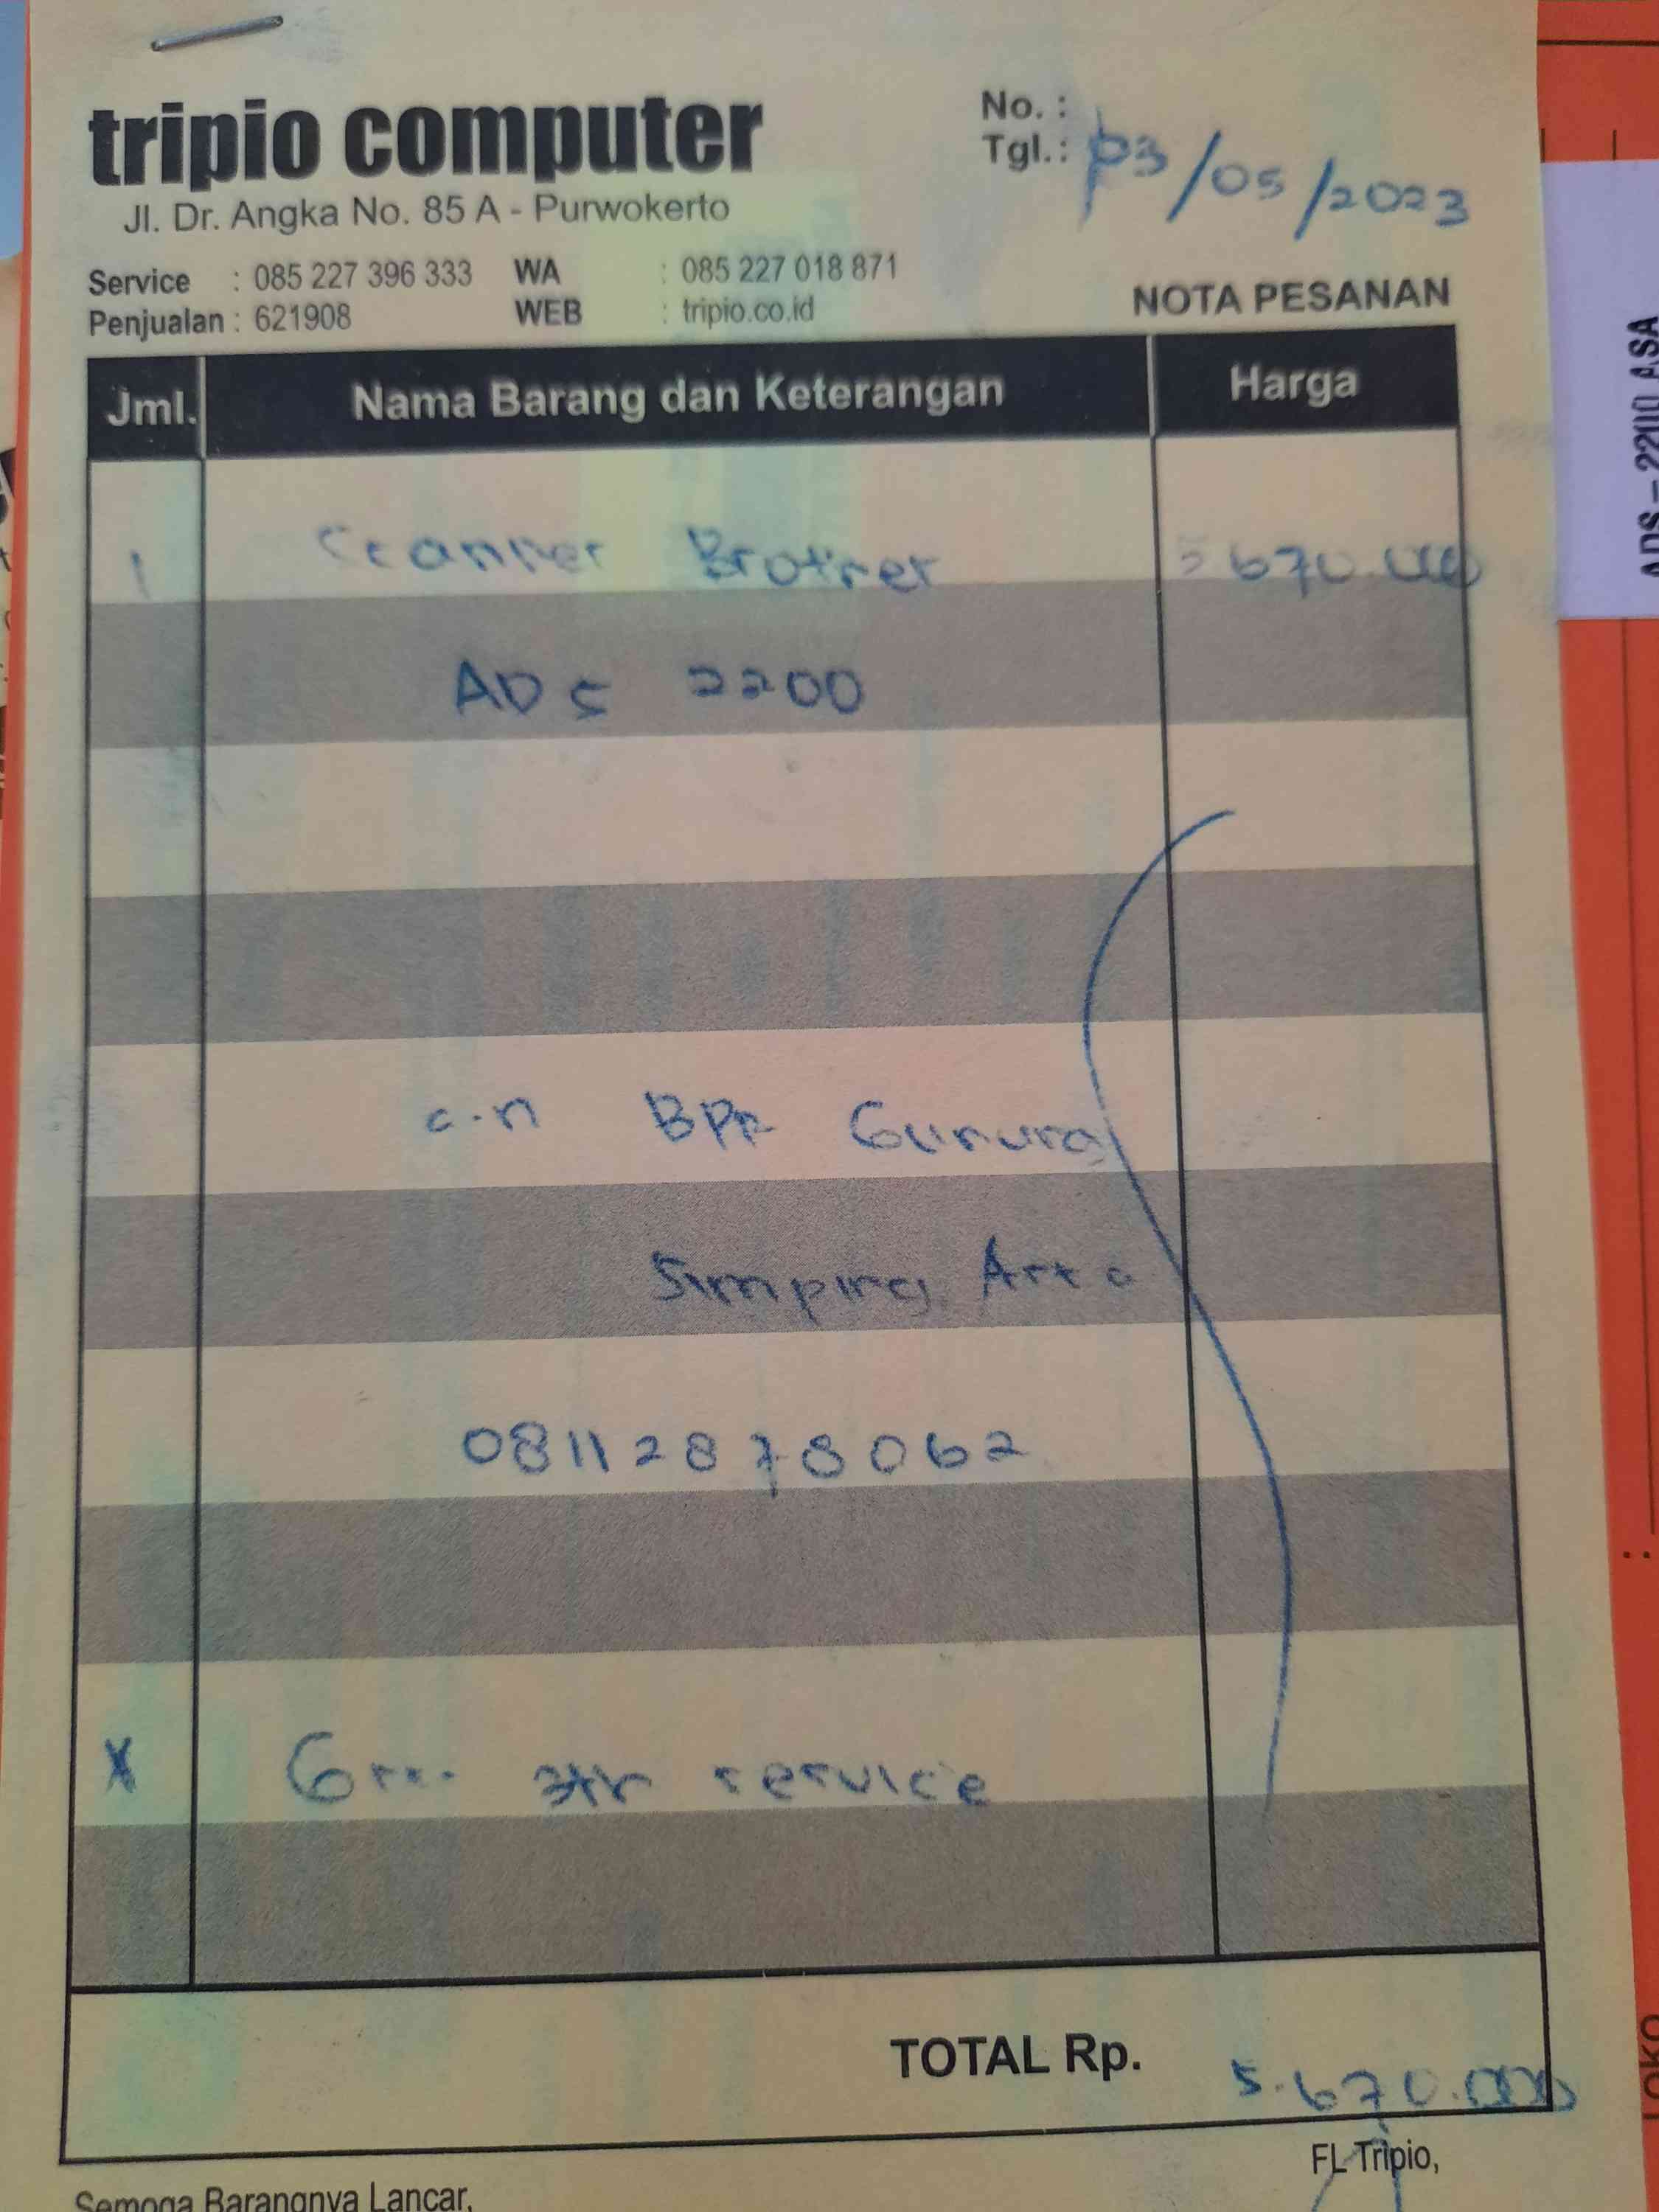 tripio computer
Jl. Dr. Angka No. 85 A - Purwokerto
Service : 085 227 396 333 WA : 085 227 018 871
Penjualan : 621908 WEB : tripio.co.id
No. :
Tgl. : 03/05/2023
NOTA PESANAN
Jml. Nama Barang dan Keterangan Harga
1 Scanner Brother 5.670.000
ADS 2200
a.n BPR Gunung
Simping Arta
08112878062
X service
TOTAL Rp. 5.670.000
FL Tripio,
Semoga Barangnya Lancar,
ADS-2200 ASA